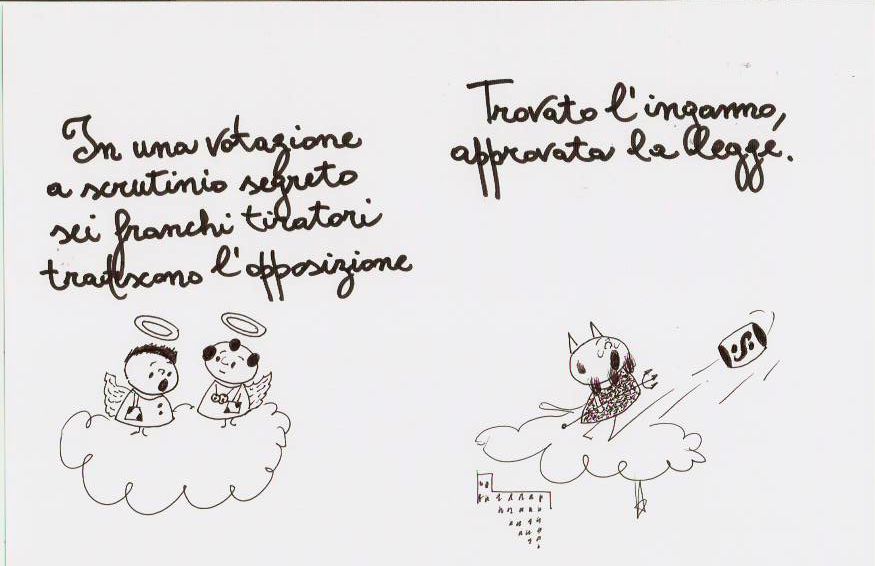 In una votazione
a scrutinio segreto
sei franchi tiratori
tradiscono l'opposizione
Trovato l'inganno,
approvata la legge.